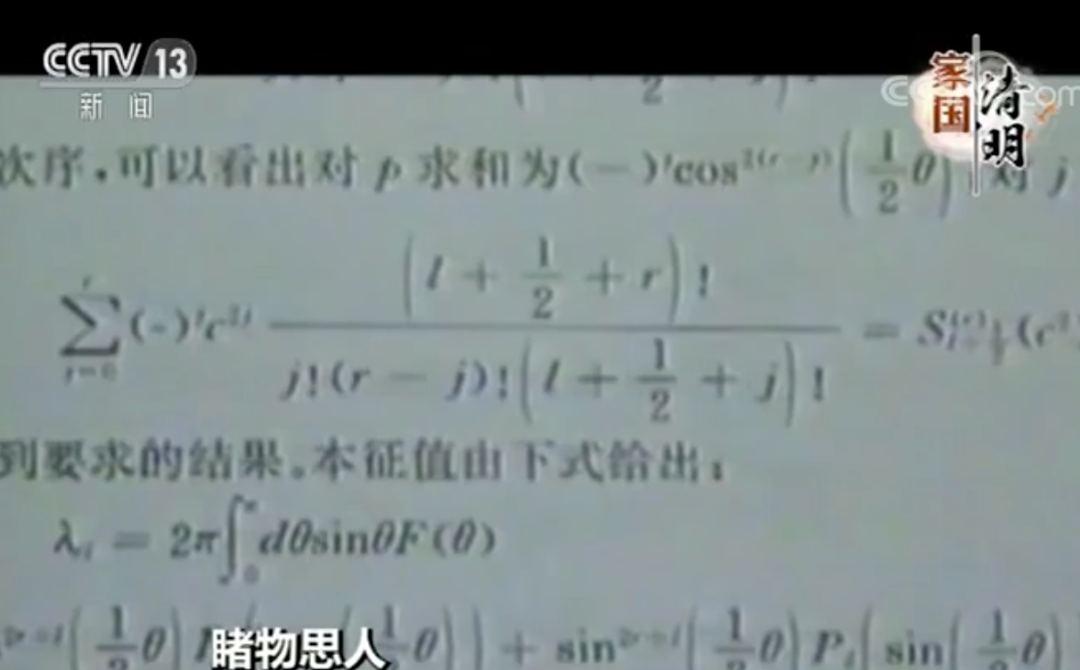 CCTV 13
新闻
家国
清明
次序,可以看出对 p 求和为(-)^r cos^{2(r-p)}(1/2 θ) 对 j
\sum_{j=0}^{r} (-)^j c^{2j} \frac{(l + 1/2 + r)!}{j!(r - j)!(l + 1/2 + j)!} = S
到要求的结果。本征值由下式给出:
λ_l = 2π∫_0^π dθsinθF(θ)
(1/2 θ) + sin (1/2 θ) P_l ( sin ( 1/2 θ )
睹物思人